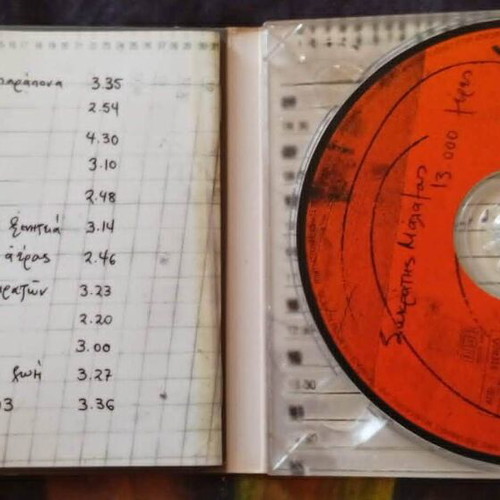 παράπονα 3.35
2.54
4.30
3.10
2.48
ξενητειά 3.14
αέρας 2.46
3.23
2.20
3.00
ζωή 3.27
3.36
Σωκράτης Μάλαμας
13 000 μέρες